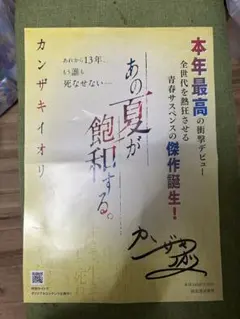 本年最高の衝撃デビュー
全世代を熱狂させる
青春サスペンスの傑作誕生!
あの夏が
飽和する。
あれから13年…
い誰も
死なせない…
カンザキイオリ
カンザキイオリ